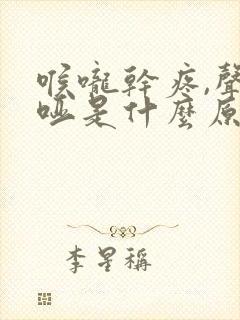 喉嚨幹疼,聲
啞是什麼原
李星稱